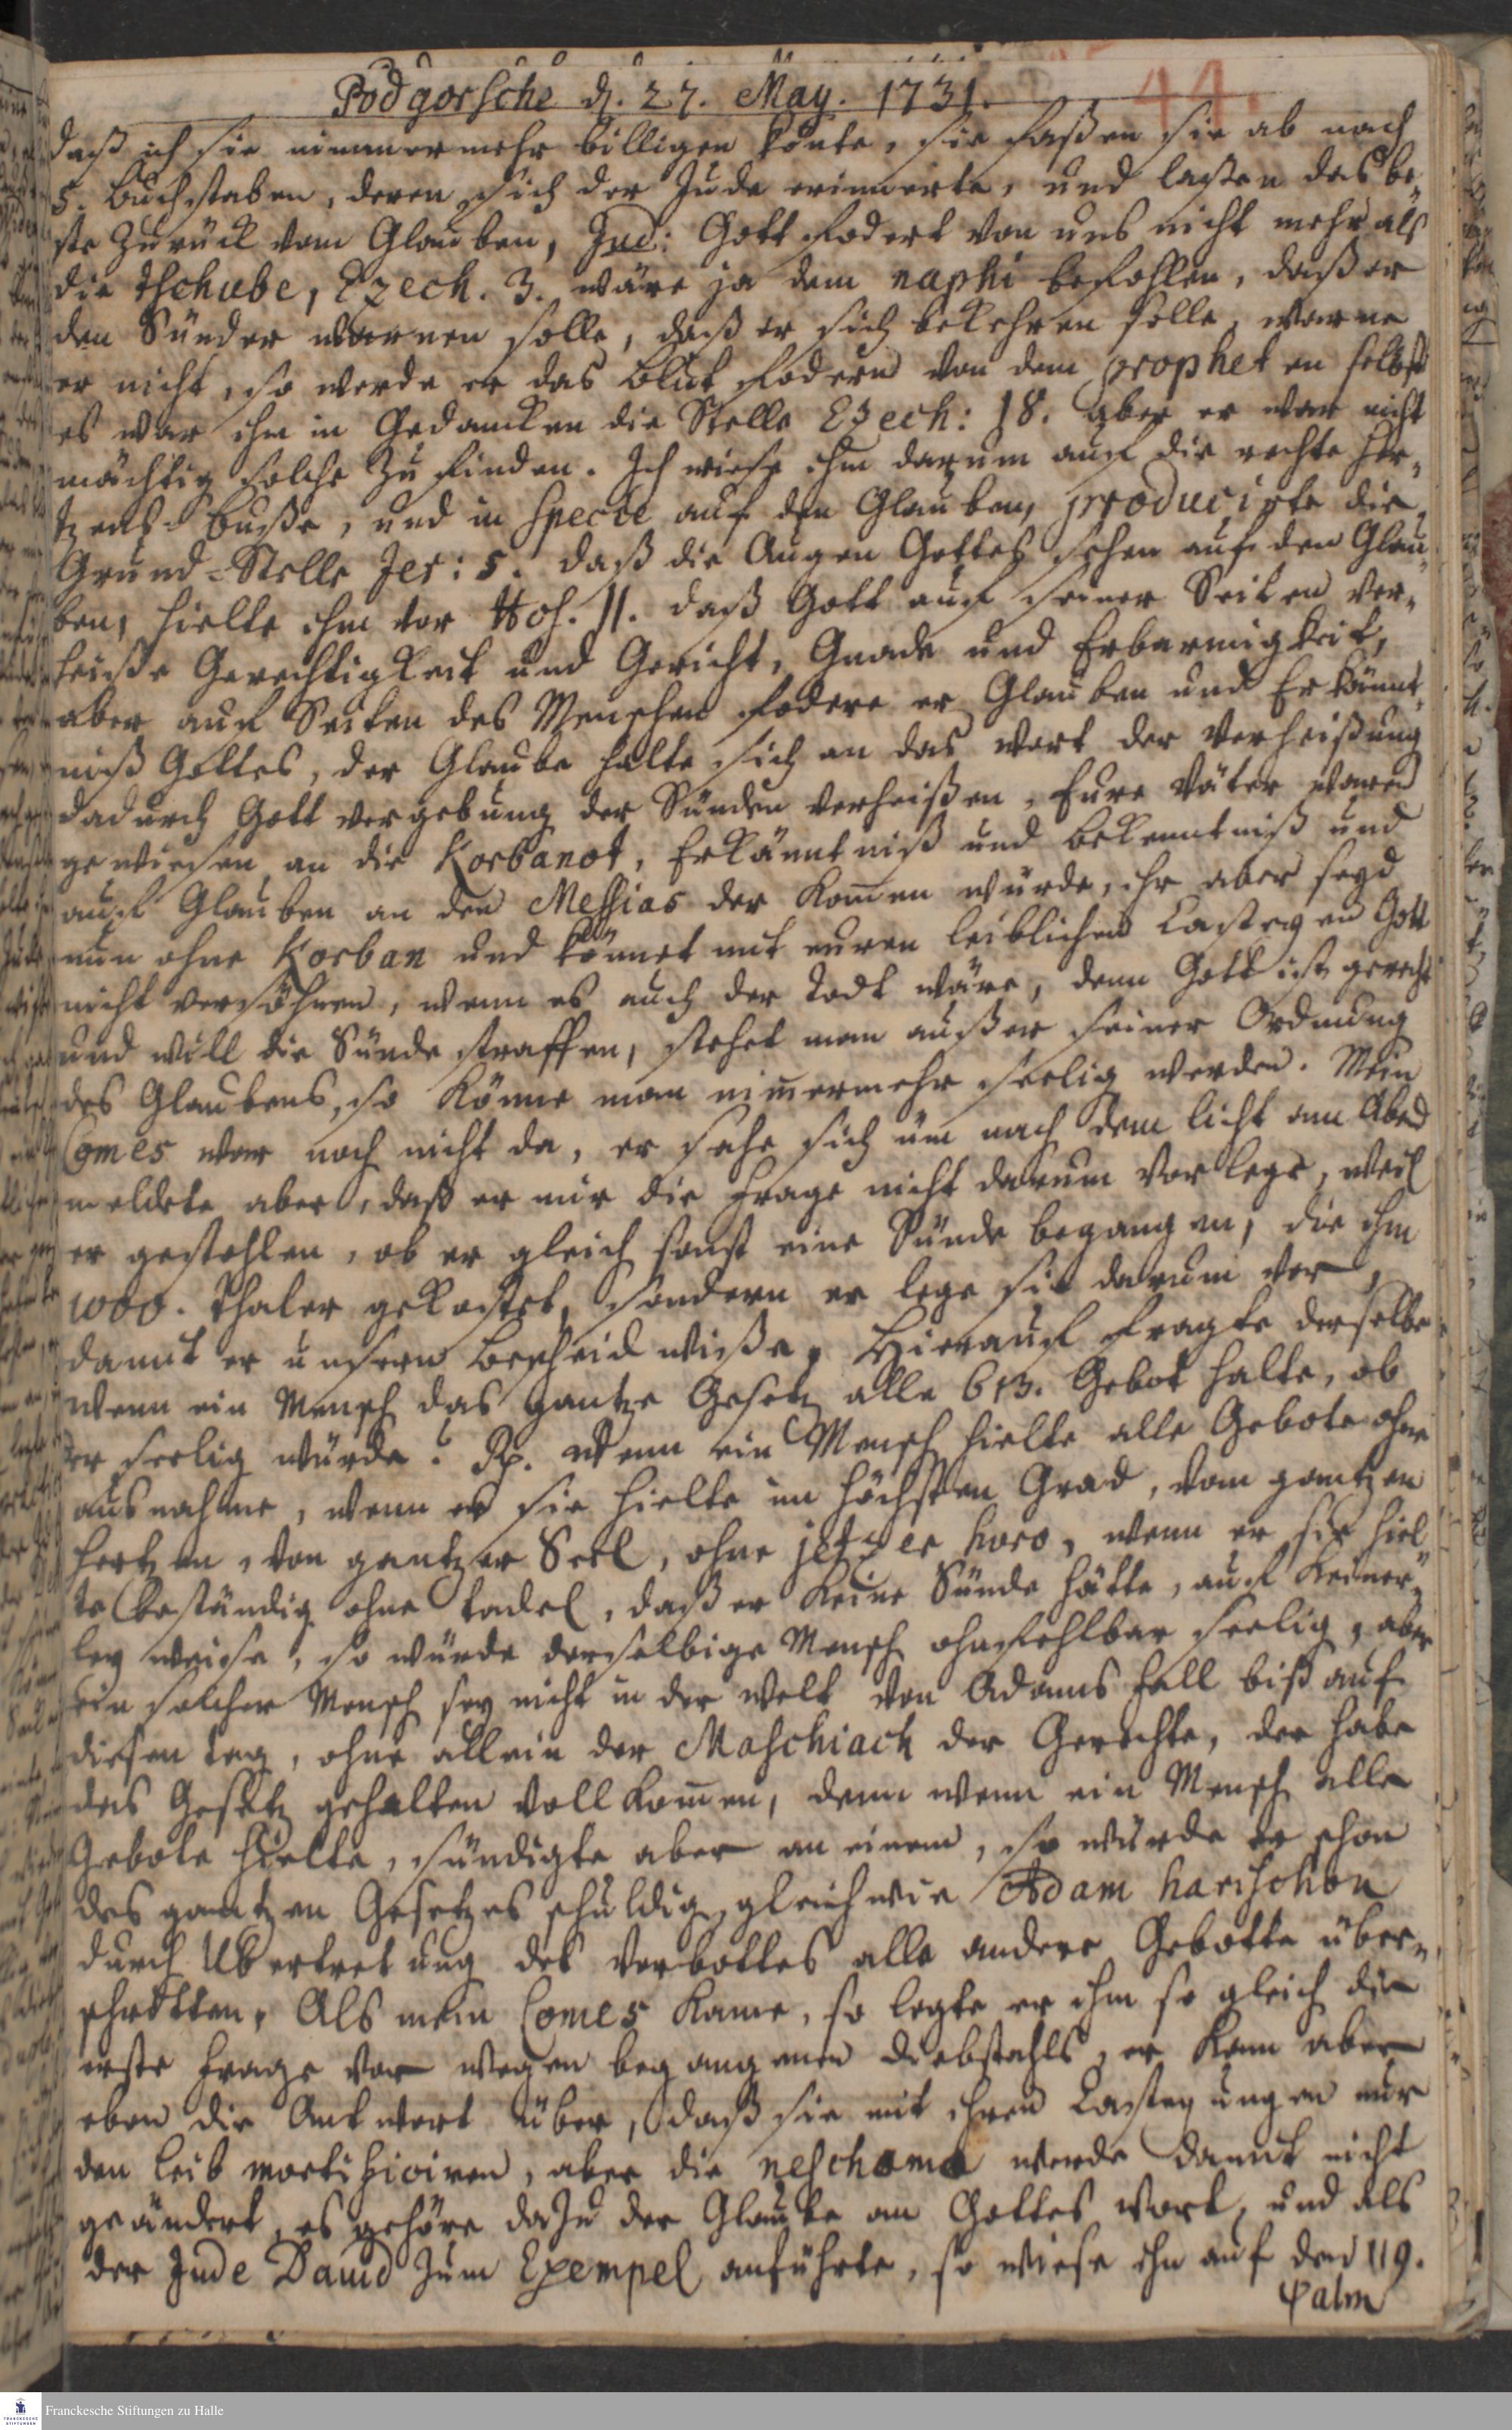 Podgorsche d. 27. May. 1731.
44.
daß ich sie nimmermehr billigen könte, sie faßen sie ab nach
5. Buchstaben, deren sich der Jude erinnerte, und laßen das be,,
ste zurück vom Glauben, Jud: Gott fodert von uns nicht mehr als
die tschube, Ezech. 3. wäre ja dem naphi befohlen, daß er
den Sünder warnen solle, daß er sich bekehren solle, warne
er nicht, so werde er das Blut fodern von dem propheten selbst
es war ihm in Gedancken die Stelle Ezech: 18. aber er war nicht
mächtig solche zu finden. Ich wiese ihn darum auf die rechte Her,,
tzens-Buße, und in specie auf den Glauben, producirte die
Grund-Stelle Jer: 5. daß die Augen Gottes sehen auf den Glau,,
ben, hielte ihm vor Hos. II. daß Gott auf seiner Seiten ver,,
heiße Gerechtigkeit und Gericht, Gnade und Erbarmigkeit,
aber auf Seiten des Menschen fodere er Glauben und Erkännt,,
niß Gottes, der Glaube halte sich an das wort der Verheißung
dadurch Gott vergebung der Sünden verheißen, Eure Väter waren
gewiesen an die Korbanot, Erkänntniß und bekenntniß und
auf Glauben an den Messias der kom̅en würde, ihr aber seyd
nun ohne Korban und könnet mit euren leiblichen Casteyen Gott
nicht versöhnen, wenn es auch der todt wäre, denn Gott ist gerecht
und will die Sünde straffen, stehet man außer seiner Ordnung
des Glaubens, so könne man nim̅ermehr seelig werden. Mein
Comes war noch nicht da, er sahe sich um nach dem licht am Abend
meldete aber, daß er mir die Frage nicht darum vorlege, weil
er gestohlen, ob er gleich sonst eine Sünde begangen, die ihm
1000. Thaler gekostet, sondern er lege sie darum vor,
damit er unsern Bescheid wiße, Hierauf fragte derselbe
wenn ein Mensch das gantze Gesetz alle 613. Gebot halte, ob
er seelig würde? Rp. Wenn ein Mensch hielte alle Gebote ohne
ausnahme, wenn er sie hielte im höchsten Grad, vom gantzen
Hertzen, von gantzer Seel, ohne jetzer horo, wenn er sie hiel,,
te beständig ohne tadel, daß er keine Sünde hätte, auf keiner,,
ley weise, so würde derselbige Mensch ohnfehlbar seelig, aber
ein solcher Mensch sey nicht in der welt von Adams Fall biß auf
diesen tag, ohne allein der Maschiach der Gerechte, der habe
das Gesetz gehalten vollkom̅en, denn wenn ein Mensch alle
Gebote hielte, sündigte aber an einem, so würde er schon
des gantzen Gesetzes schuldig, gleichwie Adam harischon
durch Ubertretung des Verbottes alle andere Gebotte über,,
schritten, Als mein Comes kame, so legte er ihm so gleich die
erste Frage vor wegen begangenen diebstahls, er kam aber
eben die Antwort über, daß sie mit ihren Casteyungen nur
den Leib mortificiren, aber die neschama werde damit nicht
geändert, es gehöre dazu der Glaube an Gottes wort, und als
der Jude David zum Exempel anführte, so wiese ihn auf den 119.
Psalm
Franckesche Stiftungen zu Halle